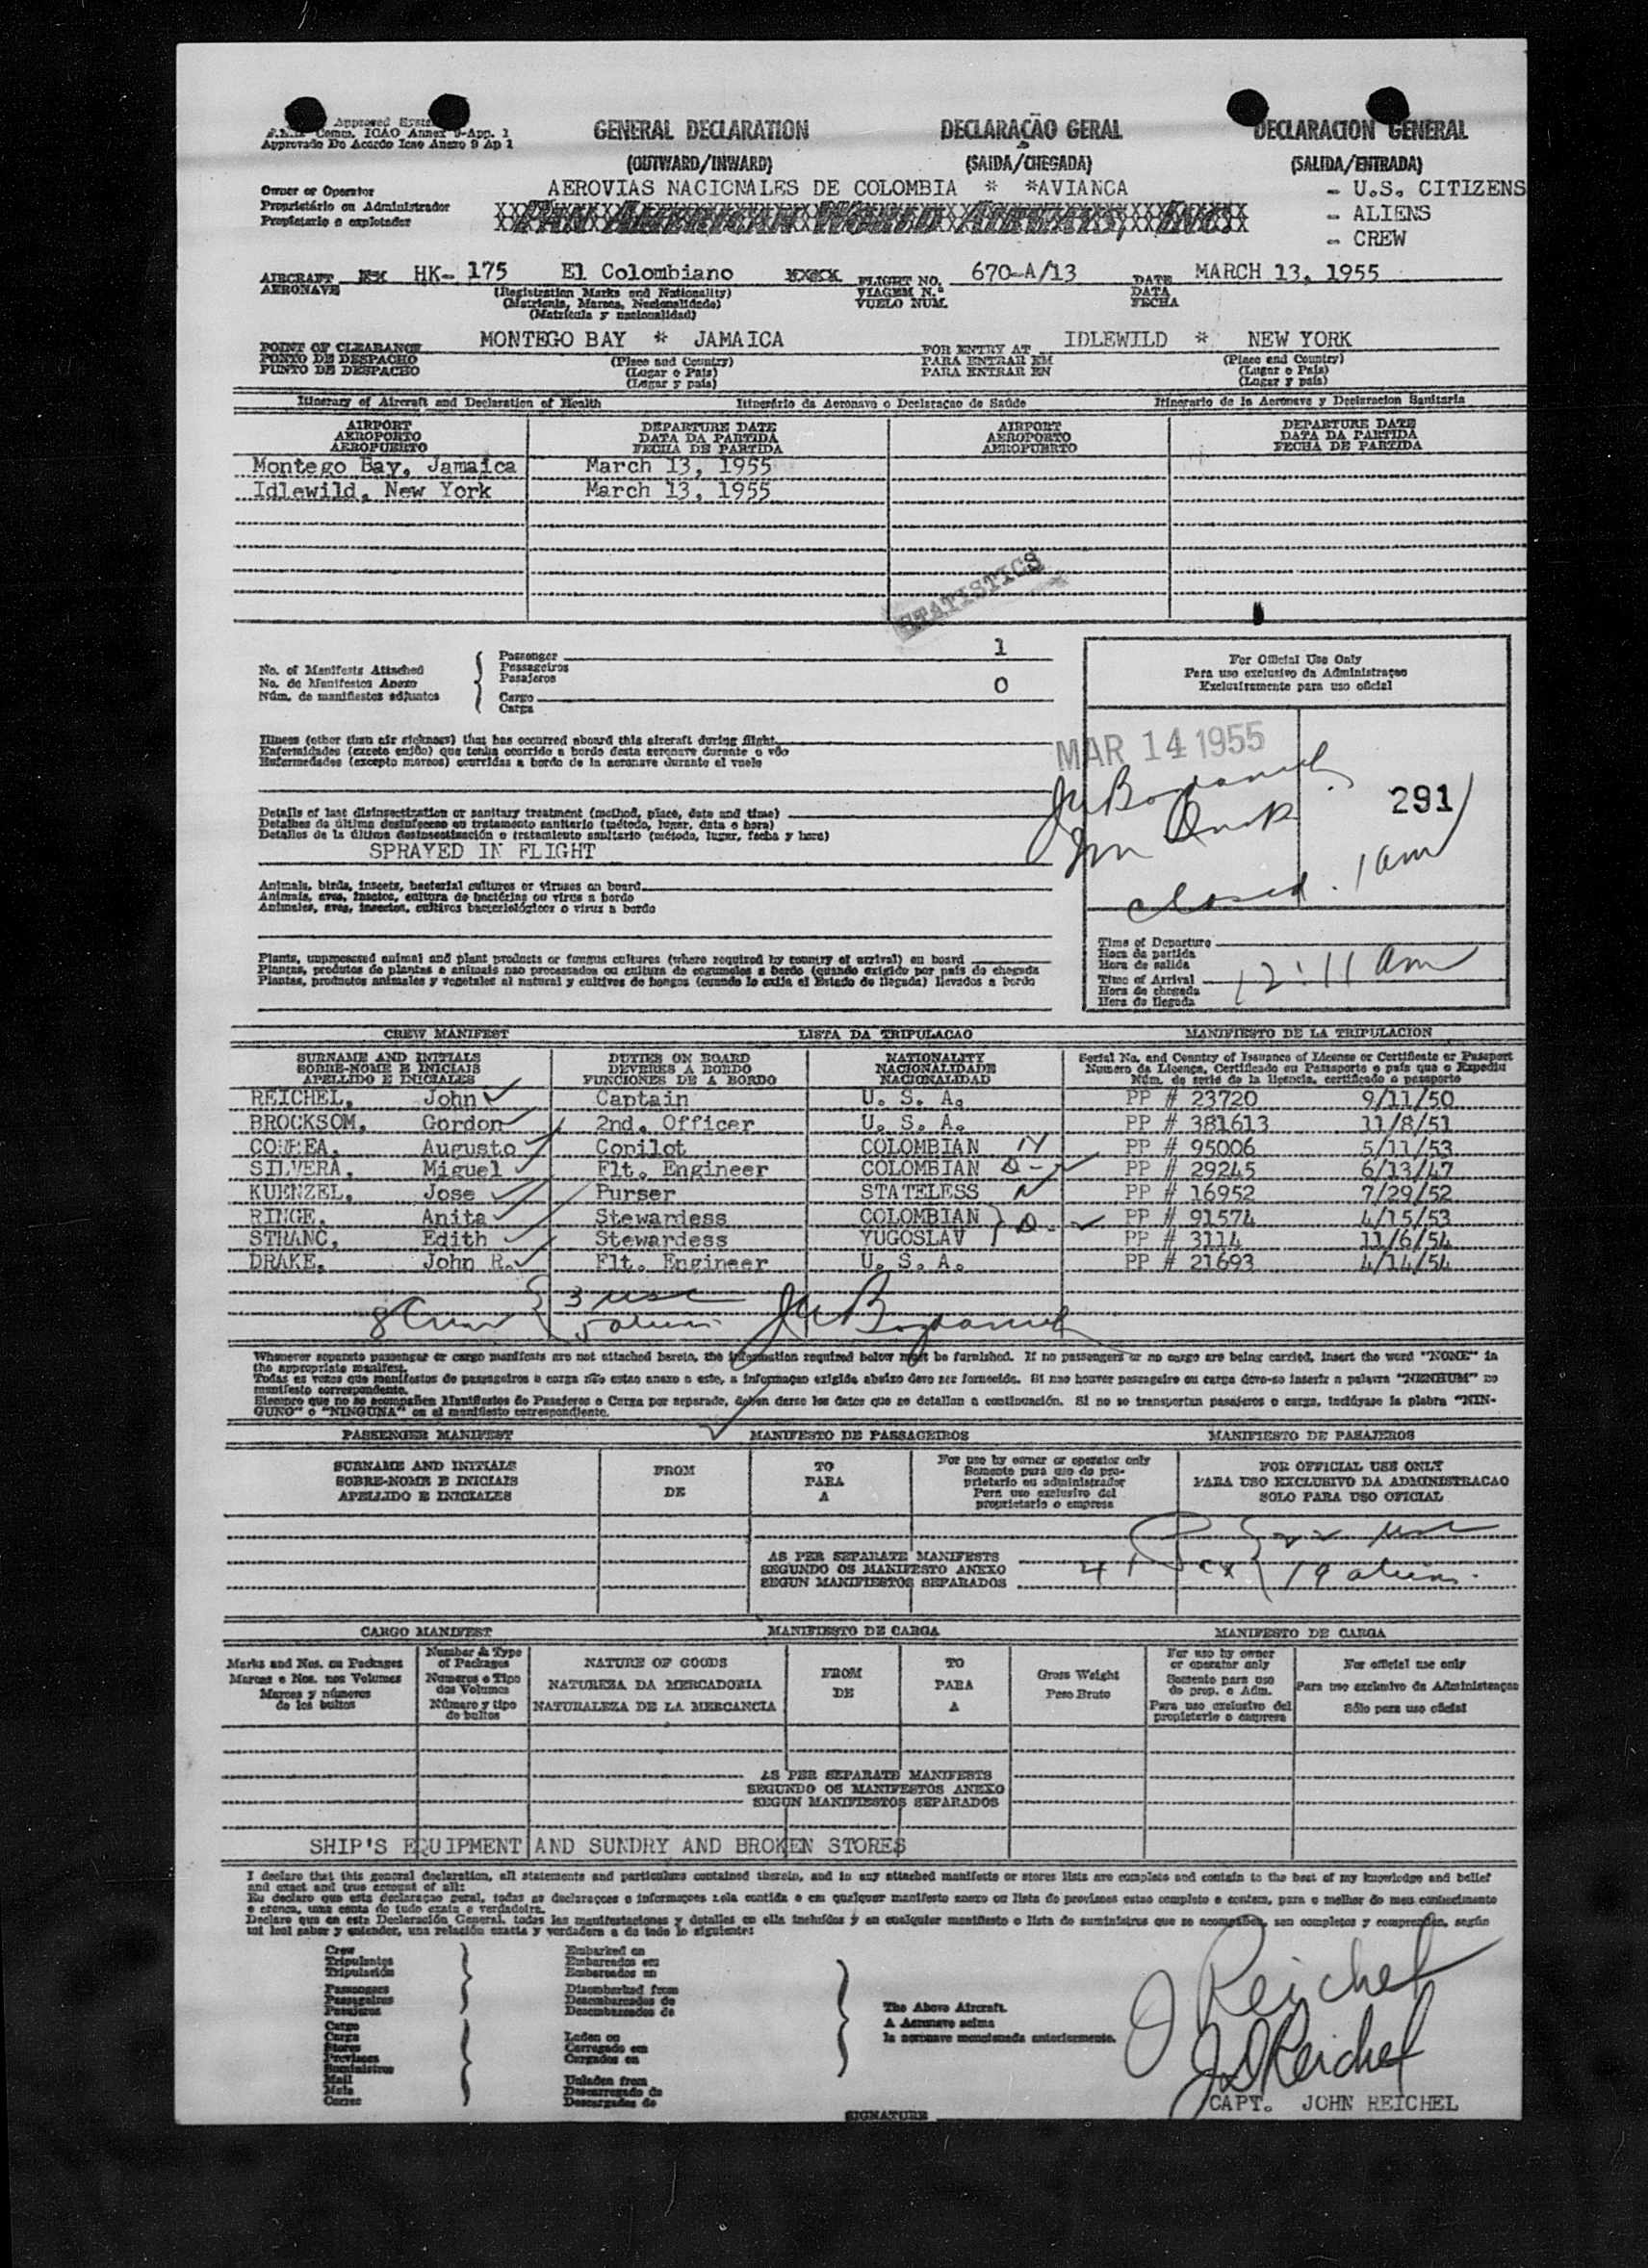 Approved
Comm. ICAO Annex 9-App. 1
Approvado De Acordo Icao Anexo 9 Ap 1
GENERAL DECLARATION
(OUTWARD/INWARD)
DECLARAÇÃO GERAL
(SAIDA/CHEGADA)
DECLARACION GENERAL
(SALIDA/ENTRADA)
Owner or Operator
Proprietário ou Administrador
Propietario o explotador
AEROVIAS NACIONALES DE COLOMBIA * *AVIANCA
PAN AMERICAN WORLD AIRWAYS, INC.
- U.S. CITIZENS
- ALIENS
- CREW
AIRCRAFT HK- 175 El Colombiano FLIGHT NO. 670-A/13 DATE MARCH 13, 1955
AERONAVE (Registration Marks and Nationality) VIAGEM N.º DATA
(Matricula, Marcas, Nacionalidade) VUELO NUM. FECHA
(Matrícula y nacionalidad)
POINT OF CLEARANCE MONTEGO BAY * JAMAICA FOR ENTRY AT IDLEWILD * NEW YORK
PONTO DE DESPACHO (Place and Country) PARA ENTRAR EM (Place and Country)
PUNTO DE DESPACHO (Lugar o Pais) PARA ENTRAR EN (Lugar o Pais)
(Lugar y pais) (Lugar y pais)
Itinerary of Aircraft and Declaration of Health Itinerário da Aeronave o Declaraçao de Saúde Itinerario de la Aeronave y Declaracion Sanitaria
AIRPORT DEPARTURE DATE AIRPORT DEPARTURE DATE
AEROPORTO DATA DA PARTIDA AEROPORTO DATA DA PARTIDA
AEROPUERTO FECHA DE PARTIDA AEROPUERTO FECHA DE PARTIDA
Montego Bay, Jamaica March 13, 1955
Idlewild, New York March 13, 1955
STATISTICS
No. of Manifests Attached
No. de Manifestos Anexo
Núm. de manifiestos adjuntos
Passenger 1
Passageiros
Pasajeros
Cargo 0
Carga
For Official Use Only
Para uso exclusivo da Administraçao
Exclusivamente para uso oficial
Illness (other than air sickness) that has occurred aboard this aircraft during flight
Enfermidades (exceto enjôo) que tenha ocorrido a bordo desta aeronave durante o vôo
Enfermedades (excepto mareos) ocurridas a bordo de la aeronave durante el vuelo
MAR 14 1955
291
Details of last disinsectization or sanitary treatment (method, place, date and time)
Detalhes da última desinfeccao ou tratamento sanitario (método, lugar, data e hora)
Detalles de la última desinsectización o tratamiento sanitario (método, lugar, fecha y hora)
SPRAYED IN FLIGHT
closed 1 am
Animals, birds, insects, bacterial cultures or viruses on board
Animais, aves, insetos, cultura de bactérias ou virus a bordo
Animales, aves, insectos, cultivos bacteriológicos o virus a bordo
Plants, unprocessed animal and plant products or fungus cultures (where required by country of arrival) on board
Plantas, produtos de plantas e animais nao processados ou cultura de cogumelos a bordo (quando exigido por pais de chegada
Plantas, productos animales y vegetales al natural y cultivos de hongos (cuando lo exija el Estado de llegada) llevados a bordo
Time of Departure
Hora da partida
Hora de salida
Time of Arrival 12:11 am
Hora da chegada
Hora de llegada
CREW MANIFEST LISTA DA TRIPULACAO MANIFIESTO DE LA TRIPULACION
SURNAME AND INITIALS DUTIES ON BOARD NATIONALITY Serial No. and Country of Issuance of License or Certificate or Passport
SOBRE-NOME E INICIAIS DEVERES A BORDO NACIONALIDADE Numero da Licença, Certificado ou Passaporte e pais que o Expediu
APELLIDO E INICIALES FUNCIONES DE A BORDO NACIONALIDAD Núm. de serie de la licencia, certificado o pasaporte
REICHEL, John Captain U. S. A. PP # 23720 9/11/50
BROCKSOM, Gordon 2nd. Officer U. S. A. PP # 381613 11/8/51
CORREA, Augusto Copilot COLOMBIAN PP # 95006 5/11/53
SILVERA, Miguel Flt. Engineer COLOMBIAN PP # 29245 6/13/47
KUENZEL, Jose Purser STATELESS PP # 16952 7/29/52
RINGE, Anita Stewardess COLOMBIAN PP # 91574 4/15/53
STRANC, Edith Stewardess YUGOSLAV PP # 3114 11/6/54
DRAKE, John R. Flt. Engineer U. S. A. PP # 21693 4/14/54
8 Crew 3 usc
5 aliens
Whenever separate passenger or cargo manifests are not attached hereto, the information required below must be furnished. If no passengers or no cargo are being carried, insert the word "NONE" in
the appropriate manifest.
Todas as vezes que manifestos de passageiros e carga não estao anexo a este, a informaçao exigida abaixo deve ser fornecida. Si nao houver passageiro ou carga deve-se inserir a palavra "NENHUM" no
manifesto correspondente.
Siempre que no se acompañen Manifiestos de Pasajeros o Carga por separado, deben darse los datos que se detallan a continuación. Si no se transportan pasajeros o carga, inclúyase la plabra "NIN-
GUNO" o "NINGUNA" en el manifiesto correspondiente.
PASSENGER MANIFEST MANIFESTO DE PASSAGEIROS MANIFIESTO DE PASAJEROS
SURNAME AND INITIALS FROM TO For use by owner or operator only FOR OFFICIAL USE ONLY
SOBRE-NOME E INICIAIS DE PARA Somente para uso do pro- PARA USO EXCLUSIVO DA ADMINISTRACAO
APELLIDO E INICIALES A prietario ou administrador SOLO PARA USO OFICIAL
Para uso exclusivo del
propietario o empresa
22 usc
AS PER SEPARATE MANIFESTS
SEGUNDO OS MANIFESTO ANEXO 41 19 aliens
SEGUN MANIFIESTOS SEPARADOS
CARGO MANIFEST MANIFIESTO DE CARGA MANIFESTO DE CARGA
Marks and Nos. on Packages
Marcas e Nos. nos Volumes
Marcas y números
de los bultos
Number & Type
of Packages
Numeros e Tipo
dos Volumes
Número y tipo
de bultos
NATURE OF GOODS
NATUREZA DA MERCADORIA
NATURALEZA DE LA MERCANCIA
FROM
DE
TO
PARA
A
Gross Weight
Peso Bruto
For use by owner
or operator only
Somente para uso
do prop. o Adm.
Para uso exclusivo del
propietario o empresa
For official use only
Para uso exclusivo da Administraçao
Sólo para uso oficial
AS PER SEPARATE MANIFESTS
SEGUNDO OS MANIFESTOS ANEXO
SEGUN MANIFIESTOS SEPARADOS
SHIP'S EQUIPMENT AND SUNDRY AND BROKEN STORES
I declare that this general declaration, all statements and particulars contained therein, and in any attached manifests or stores lists are complete and contain to the best of my knowledge and belief
and exact and true account of all:
Eu declaro que esta declaraçao geral, todas as declaraçoes e informaçoes nela contida e em qualquer manifesto anexo ou lista de provisoes estao completo e contem, para o melhor do meu conhecimento
e crenca, uma conta de tudo exata e verdadeira.
Declaro que en esta Declaración General, todas las manifestaciones y detalles en ella incluidos y en cualquier manifiesto o lista de suministros que se acompañen, son completos y comprenden, según
mi leal saber y entender, una relación exacta y verdadera a de todo lo siguiente:
Crew
Tripulantes
Tripulación
Passengers
Passageiros
Pasajeros
Cargo
Carga
Stores
Provisoes
Suministros
Mail
Mala
Correo
Embarked on
Embarcados em
Embarcados en
Disembarked from
Desembarcados de
Desembarcados de
Laden on
Carregado em
Cargados en
Unladen from
Descarregado de
Descargados de
The Above Aircraft.
A Aeronave acima
la aeronave mencionada anteriormente.
J Reichel
J D Reichel
SIGNATURE CAPT. JOHN REICHEL